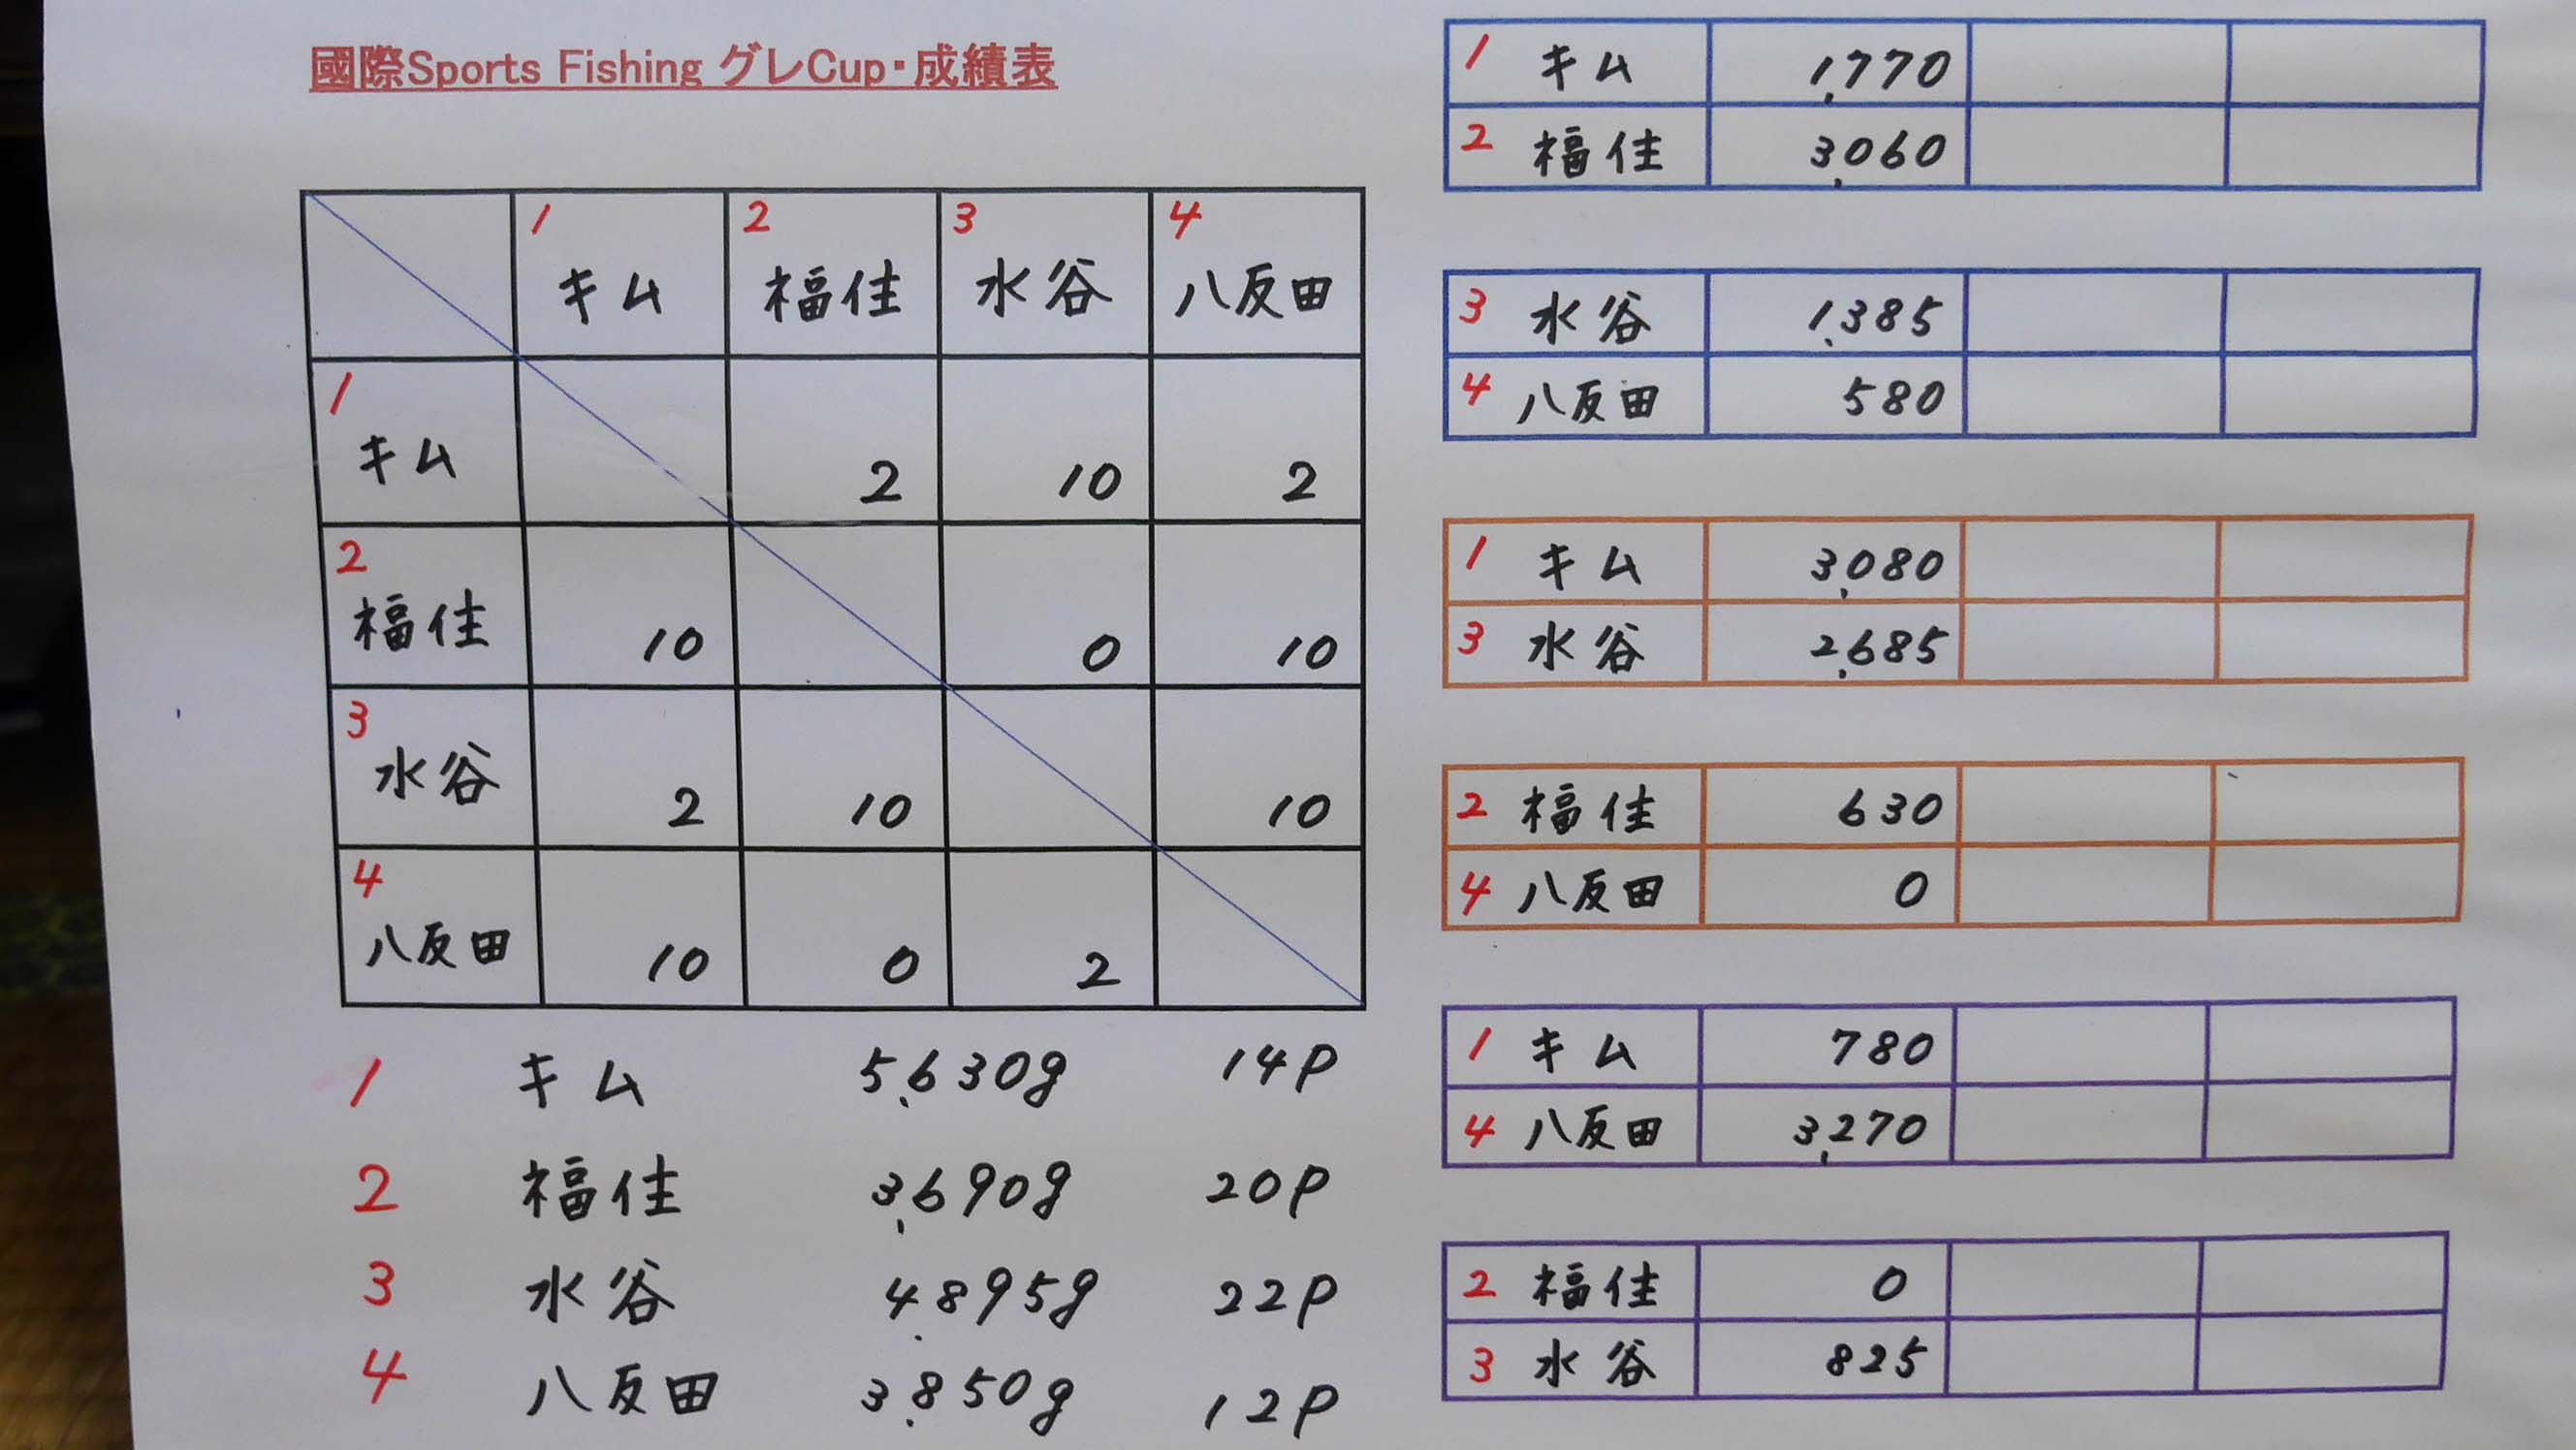 國際Sports Fishing グレCup・成績表
1 キム 2 福住 3 水谷 4 八反田
1 キム 2 10 2
2 福住 10 0 10
3 水谷 2 10 10
4 八反田 10 0 2
1 キム 5,630g 14P
2 福住 3,690g 20P
3 水谷 4,895g 22P
4 八反田 3,850g 12P
1 キム 1,770
2 福住 3,060
3 水谷 1,385
4 八反田 580
1 キム 3,080
3 水谷 2,685
2 福住 630
4 八反田 0
1 キム 780
4 八反田 3,270
2 福住 0
3 水谷 825